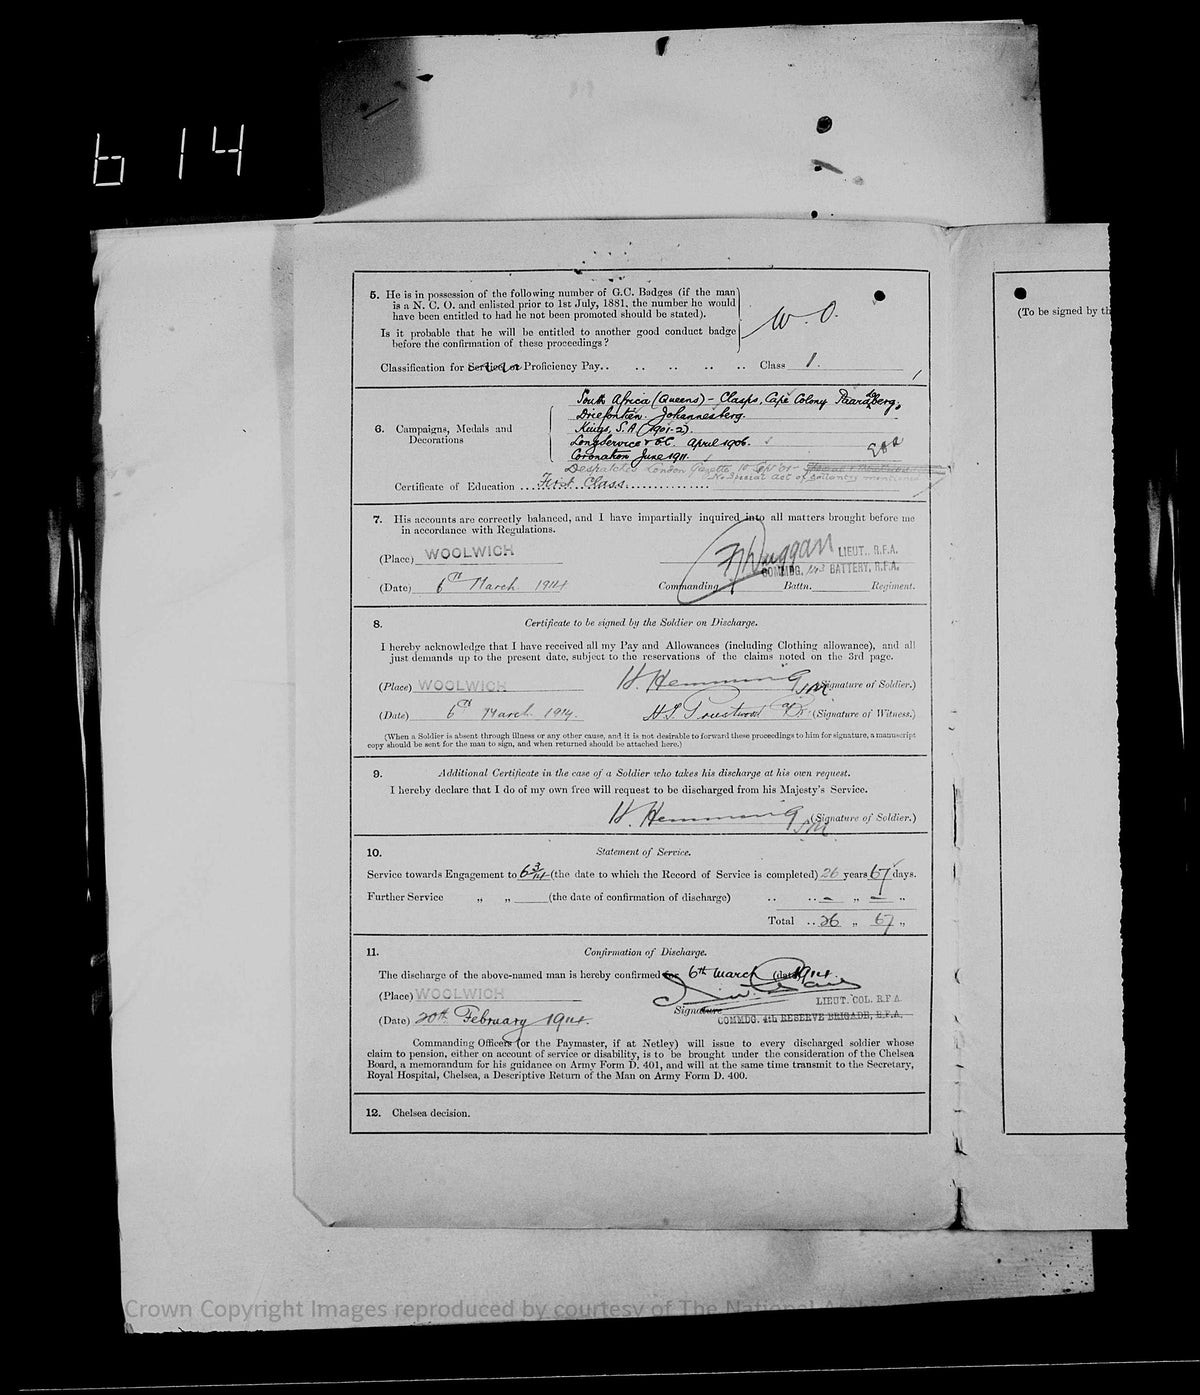 614
5. He is in possession of the following number of G.C. Badges (if the man
is a N. C. O. and enlisted prior to 1st July, 1881, the number he would
have been entitled to had he not been promoted should be stated).
W. O.
Is it probable that he will be entitled to another good conduct badge
before the confirmation of these proceedings?
Classification for Service or Proficiency Pay.. .. .. .. .. Class 1.
South Africa (Queens) - Clasps, Cape Colony Paardeberg,
Driefontein. Johannesberg.
6. Campaigns, Medals and
Decorations
Kings, S.A (1901-2).
Long Service & G.C. April 1906.
Coronation June 1911.
Despatches London Gazette 10 Sep '01 -
No special act of gallantry mentioned
Certificate of Education ... First Class
7. His accounts are correctly balanced, and I have impartially inquired into all matters brought before me
in accordance with Regulations.
(Place) WOOLWICH
Duggan LIEUT., R.F.A.
COMMDG. 143 BATTERY, R.F.A.
(Date) 6TH March 1914
Commanding Battn. Regiment.
8. Certificate to be signed by the Soldier on Discharge.
I hereby acknowledge that I have received all my Pay and Allowances (including Clothing allowance), and all
just demands up to the present date, subject to the reservations of the claims noted on the 3rd page.
(Place) WOOLWICH H. Hemming SM (Signature of Soldier.)
(Date) 6TH March 1914. (Signature of Witness.)
(When a Soldier is absent through illness or any other cause, and it is not desirable to forward these proceedings to him for signature, a manuscript
copy should be sent for the man to sign, and when returned should be attached here.)
9. Additional Certificate in the case of a Soldier who takes his discharge at his own request.
I hereby declare that I do of my own free will request to be discharged from his Majesty's Service.
H. Hemming SM (Signature of Soldier.)
10. Statement of Service.
Service towards Engagement to 6/3/14 (the date to which the Record of Service is completed) 26 years 67 days.
Further Service „ „ (the date of confirmation of discharge) .. .. — „ — „
Total .. 26 „ 67 „
11. Confirmation of Discharge.
The discharge of the above-named man is hereby confirmed for 6th March (date) 1914.
(Place) WOOLWICH
Signature LIEUT. COL. R.F.A.
(Date) 20th February 1914.
COMMDG. 4th RESERVE BRIGADE, R.F.A.
Commanding Officers (or the Paymaster, if at Netley) will issue to every discharged soldier whose
claim to pension, either on account of service or disability, is to be brought under the consideration of the Chelsea
Board, a memorandum for his guidance on Army Form D. 401, and will at the same time transmit to the Secretary,
Royal Hospital, Chelsea, a Descriptive Return of the Man on Army Form D. 400.
12. Chelsea decision.
(To be signed by th
Crown Copyright Images reproduced by courtesy of The National